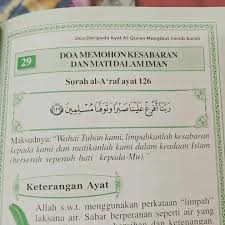 Doa Daripada Ayat Al-Quran Mengikut Tertib Surah
29
DOA MEMOHON KESABARAN
DAN MATI DALAM IMAN
Surah al-A'raf ayat 126
رَبَّنَا أَفْرِغْ عَلَيْنَا صَبْرًا وَتَوَفَّنَا مُسْلِمِينَ ﴿١٢٦﴾
Maksudnya: "Wahai Tuhan kami, limpahkanlah kesabaran
kepada kami dan matikanlah kami dalam keadaan Islam
(berserah sepenuh hati kepada-Mu)."
Keterangan Ayat
Allah s.w.t. menggunakan perkataan "limpah"
laksana air. Sabar berperanan seperti air yang
dan ketenangan.